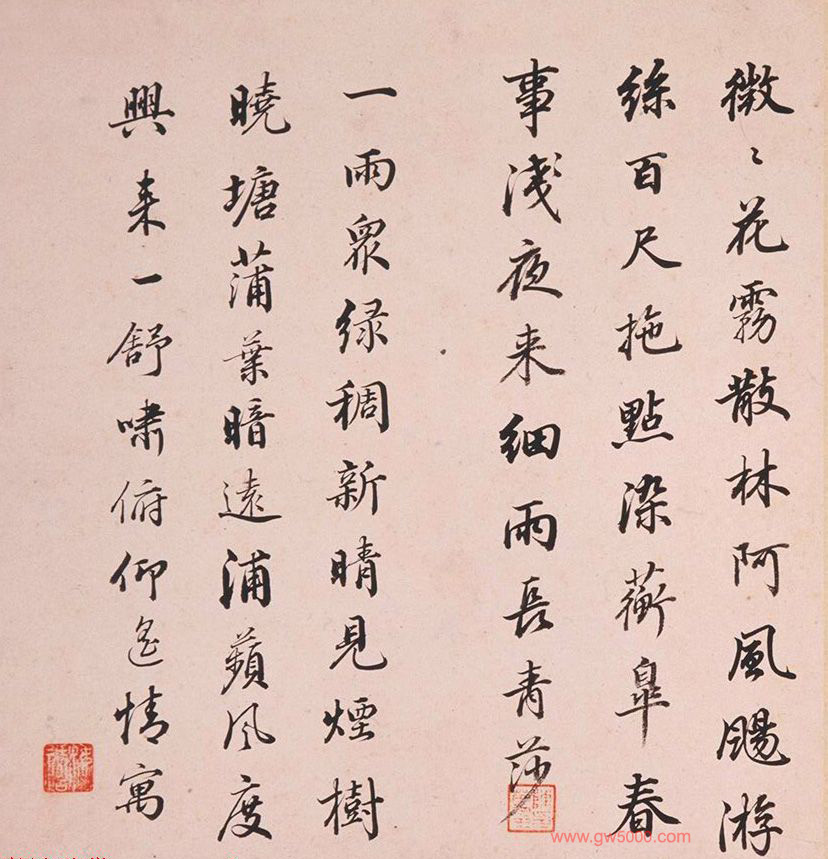 微〻花霧散林阿風颺游
絲百尺拖點染蘅皐春
事淺夜来細雨長青莎
一雨衆綠稠新晴見煙樹
曉塘蒲葉暗遠浦蘋風度
興来一舒嘯俯仰遙情寓
www.gw5000.com